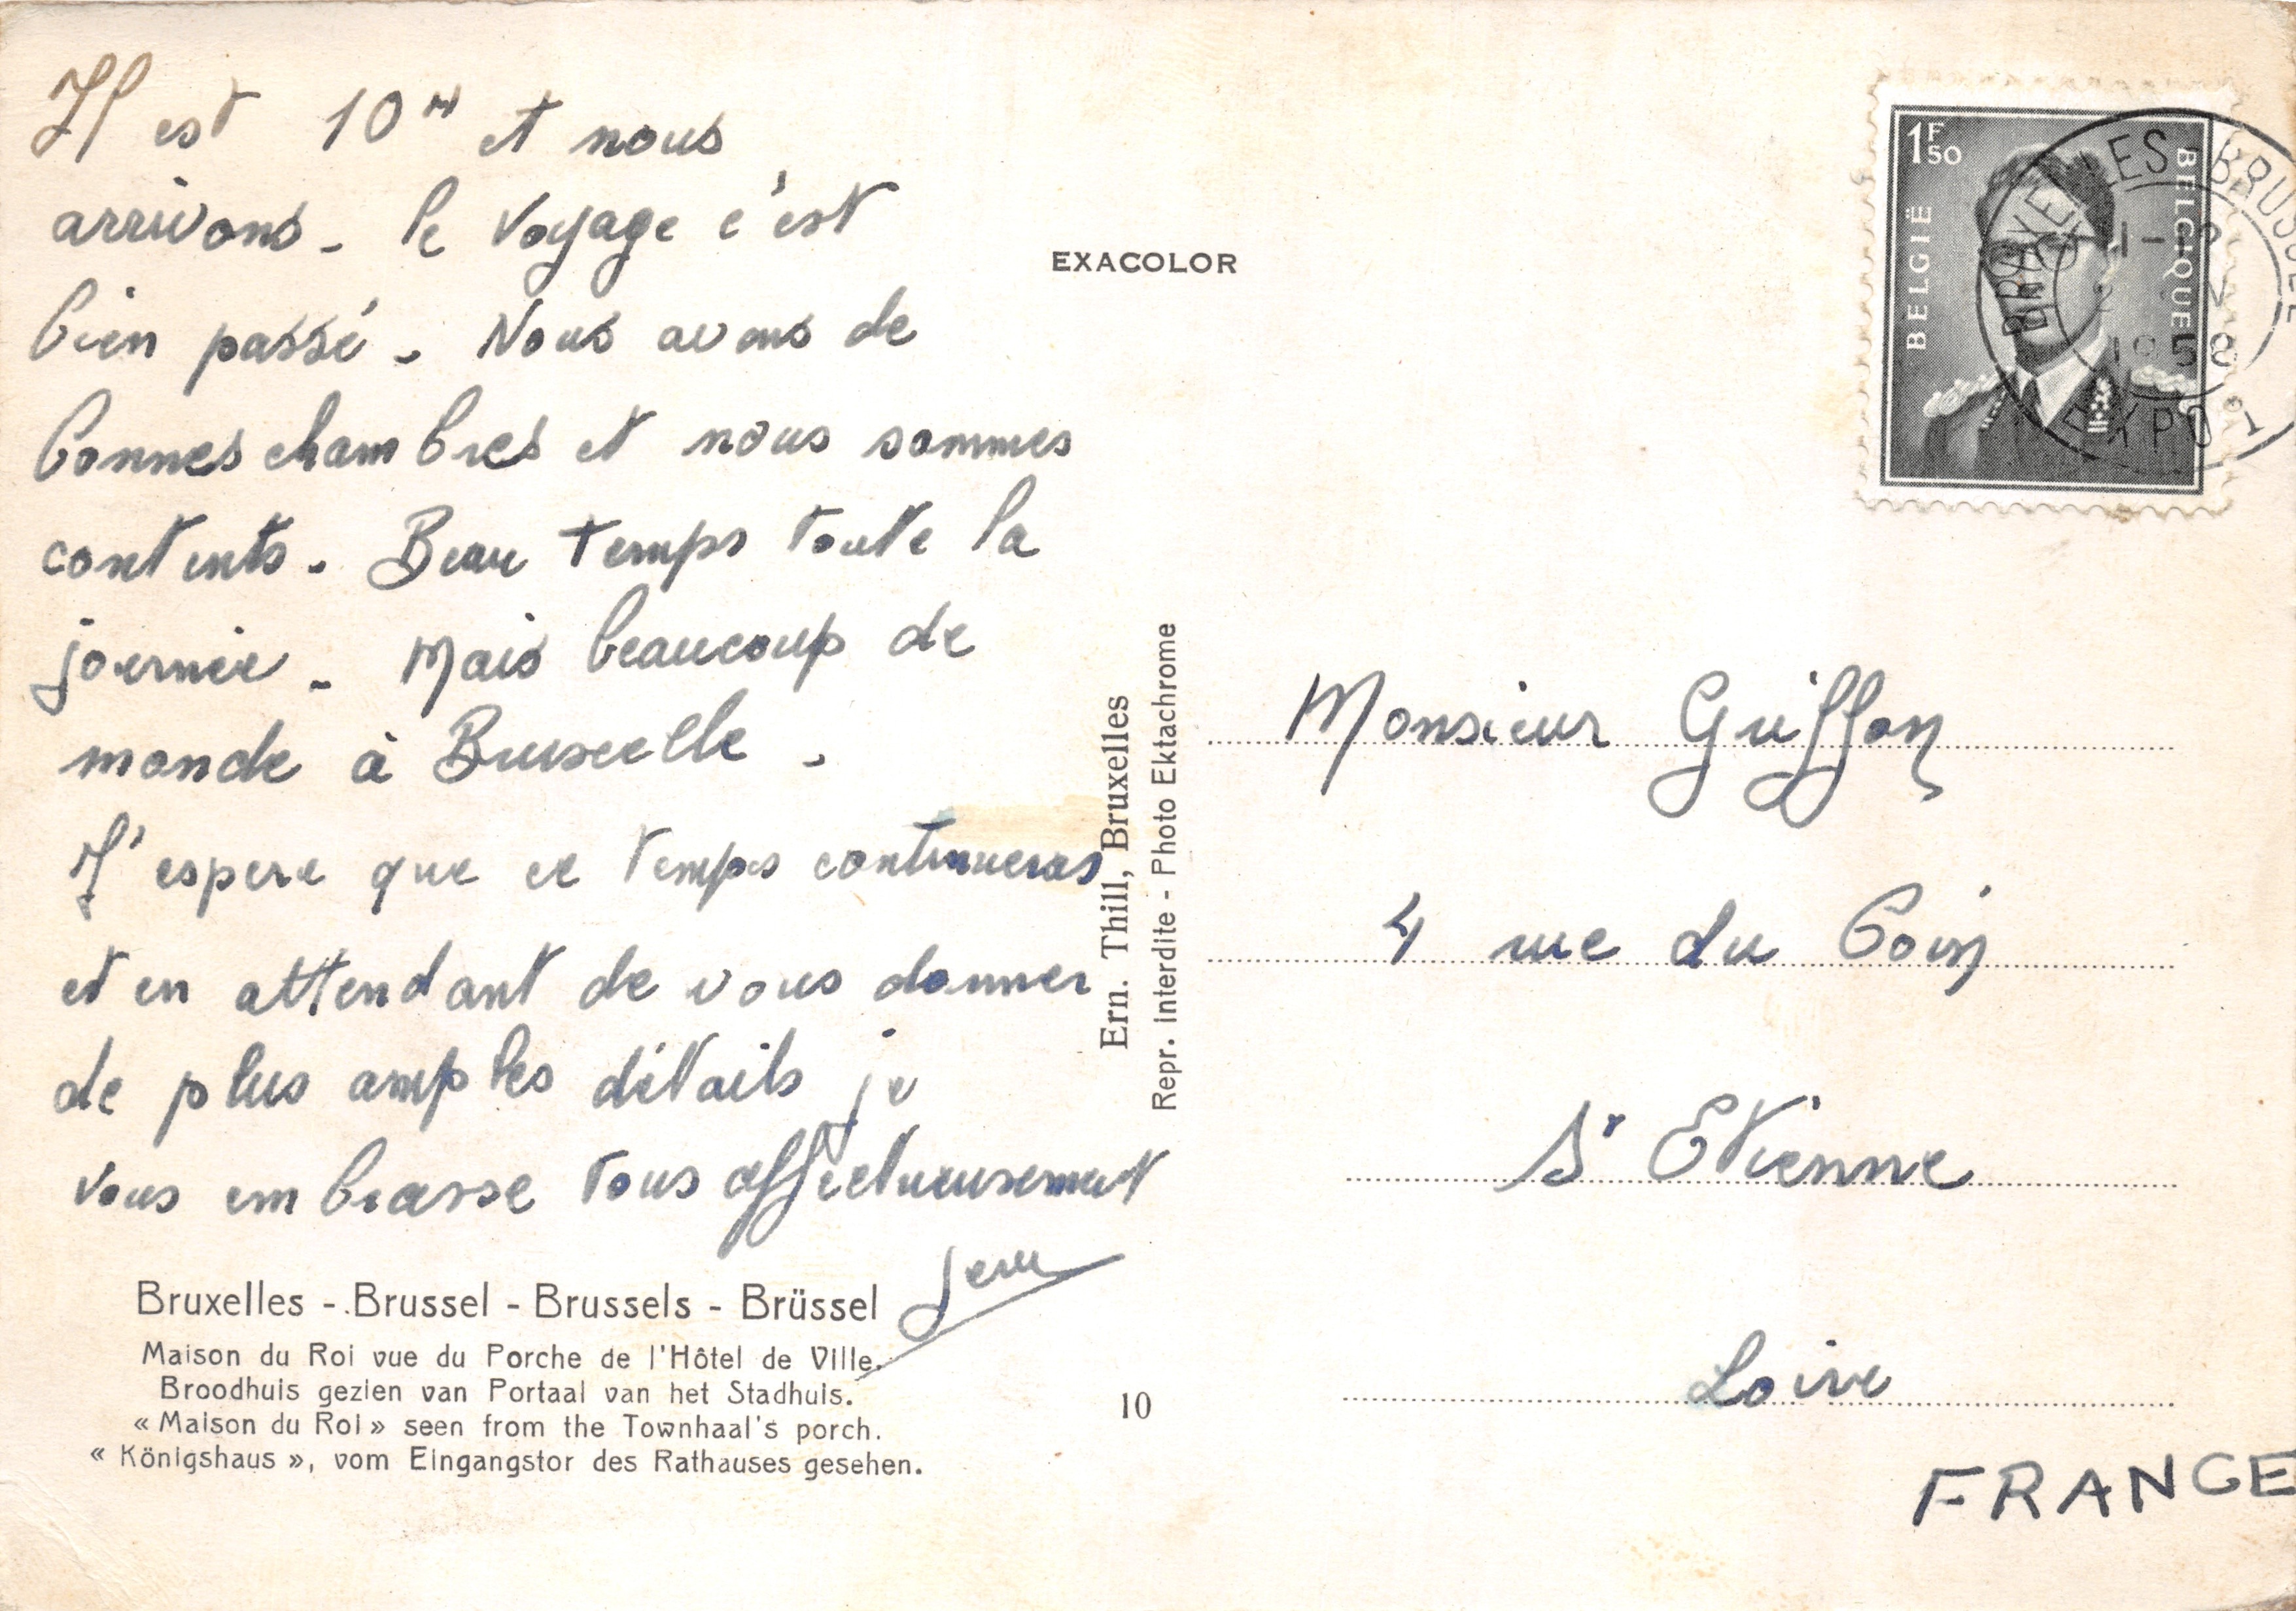 Il est 10 H et nous
arrivons - le voyage c'est
bien passé - Nous avons de
bonnes chambres et nous sommes
contents - Beau temps toute la
journée - Mais beaucoup de
monde à Bruxelle -
J'espere que ce temps continueras
et en attendant de vous donner
de plus amples détails je
vous embrasse tous affectueusement
Bruxelles - Brussel - Brussels - Brüssel
Maison du Roi vue du Porche de l'Hôtel de Ville.
Broodhuis gezien van Portaal van het Stadhuis.
« Maison du Roi » seen from the Townhaal's porch.
« Königshaus », vom Eingangstor des Rathauses gesehen.
EXACOLOR
Ern. Thill, Bruxelles
Repr. interdite - Photo Ektachrome
10
1F50
BELGIË
BELGIQUE
BRUXELLES - BRUSSEL
1958
EXPO 1
Monsieur Griffon
4 rue du Coin
St Etienne
Loire
FRANCE